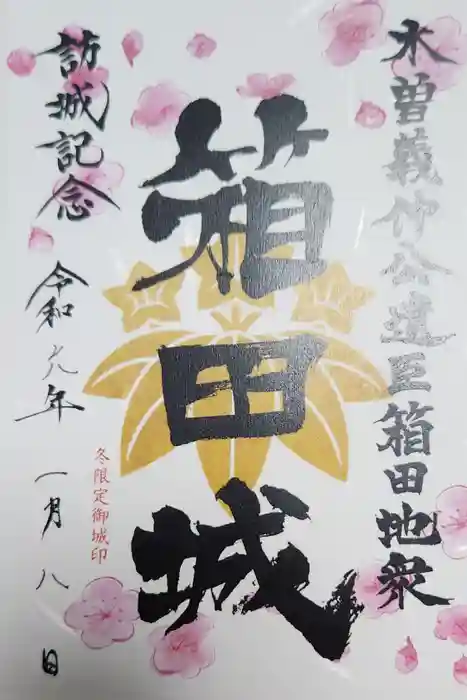 木曽義仲公遺臣箱田地衆
箱田城
冬限定御城印
訪城記念 令和 年 一月八日